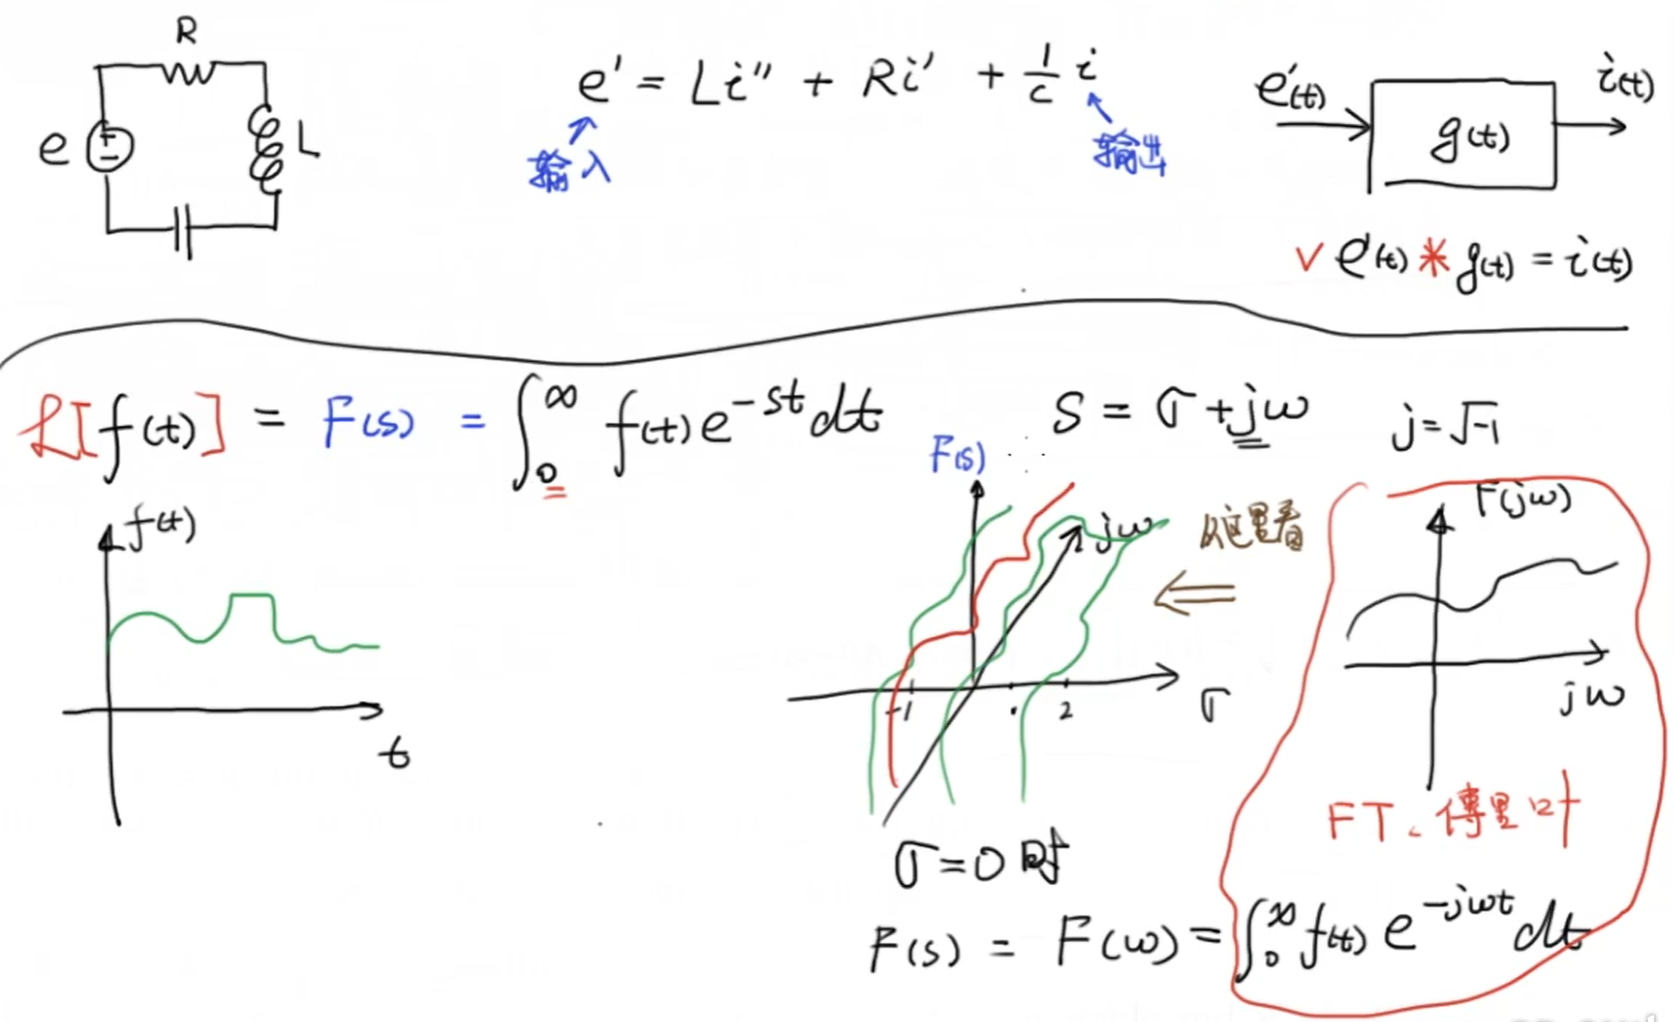 R
e L
e' = Li'' + Ri' + 1/c i
输入
输出
e'(t) g(t) i(t)
√ e'(t) * g(t) = i(t)
ℒ[f(t)] = F(s) = ∫₀^∞ f(t) e^{-st} dt
S = σ + jω
j = √-1
f(t)
t
F(s)
jω
-1 2
σ
从这里看
F(jω)
jω
FT. 傅里叶
σ = 0 时
F(s) = F(ω) = ∫₀^∞ f(t) e^{-jωt} dt